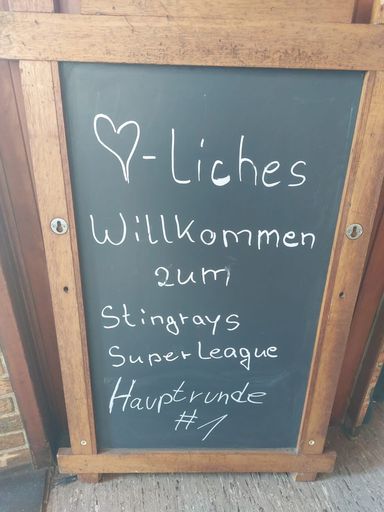 ♡-Liches
Willkommen
zum
Stingrays
Super League
Hauptrunde
#1